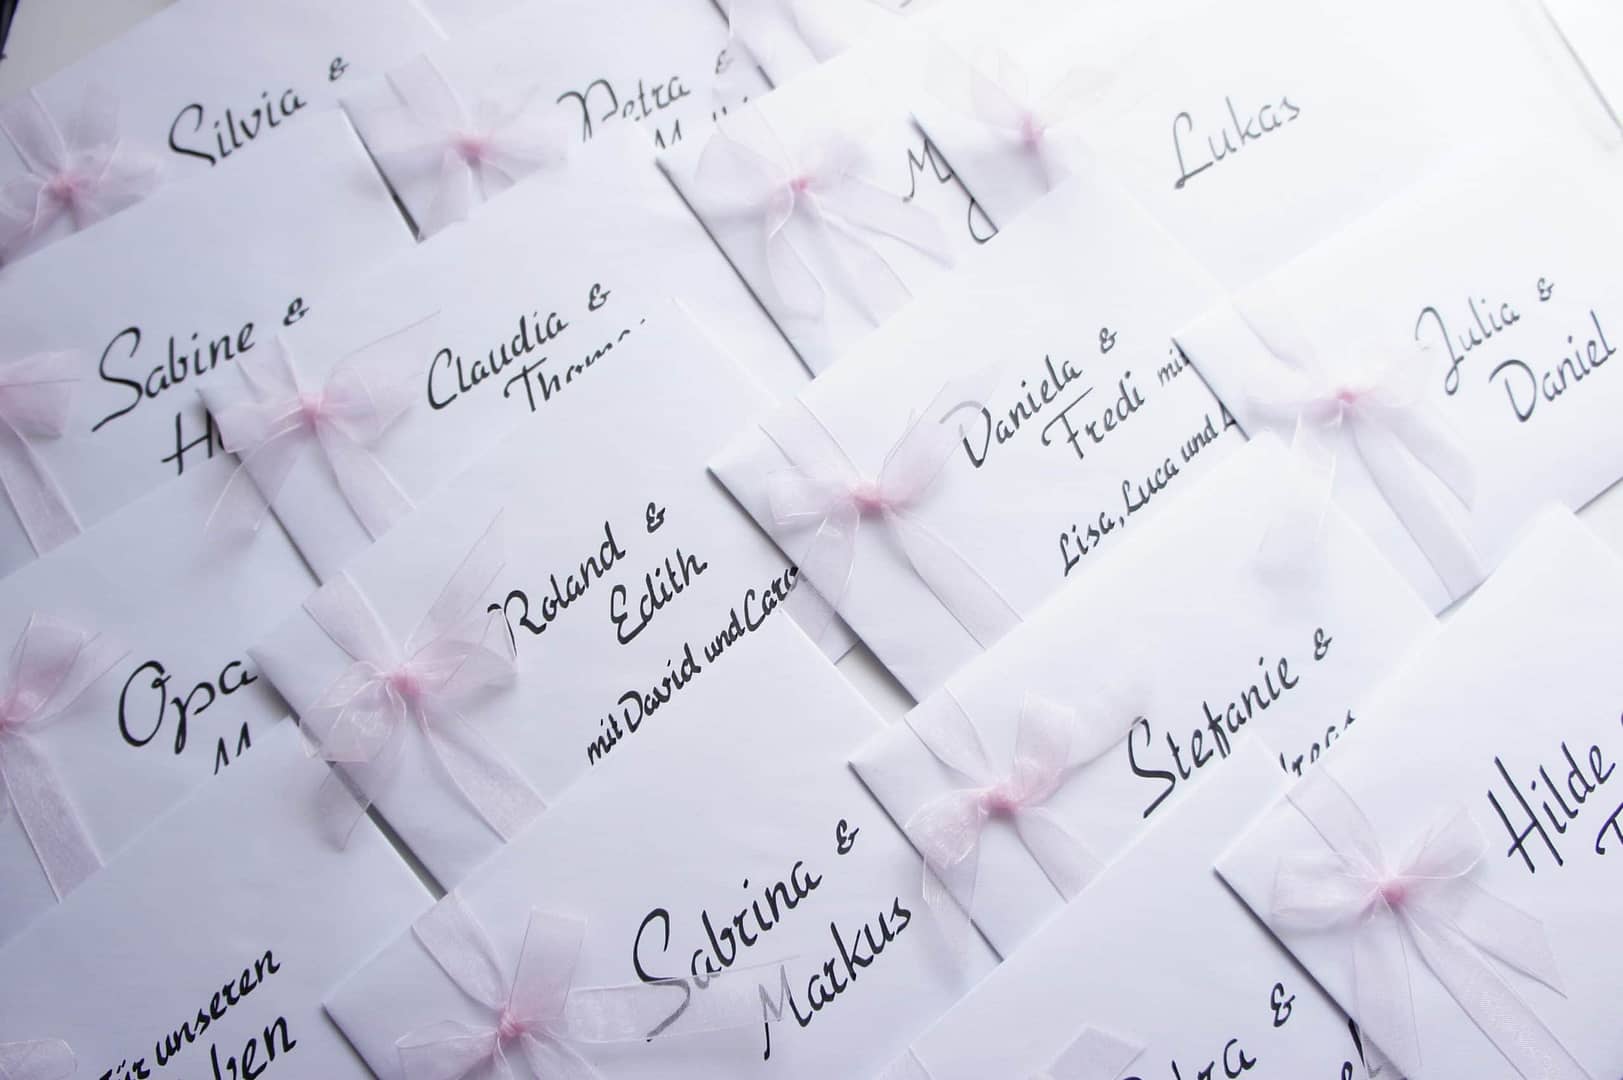 Silvia &
Petra &
Lukas
Sabine &
Claudia &
Daniela &
Fredi mit
Lisa, Luca und
Julia &
Daniel
Opa
Roland &
Edith
mit David und
Stefanie &
Hilde
Sabrina &
Markus
für unseren
&